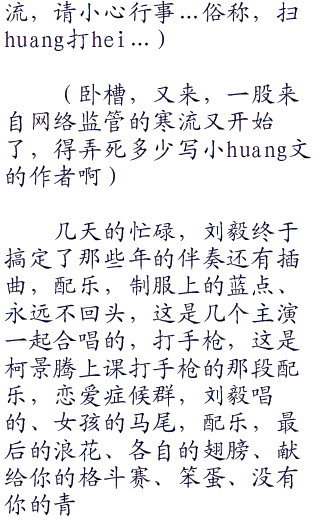 流，请小心行事…俗称，扫
huang打hei…）
（卧槽，又来，一股来
自网络监管的寒流又开始
了，得弄死多少写小huang文
的作者啊）
几天的忙碌，刘毅终于
搞定了那些年的伴奏还有插
曲，配乐，制服上的蓝点、
永远不回头，这是几个主演
一起合唱的，打手枪，这是
柯景腾上课打手枪的那段配
乐，恋爱症候群，刘毅唱
的、女孩的马尾，配乐，最
后的浪花、各自的翅膀、献
给你的格斗赛、笨蛋、没有
你的青